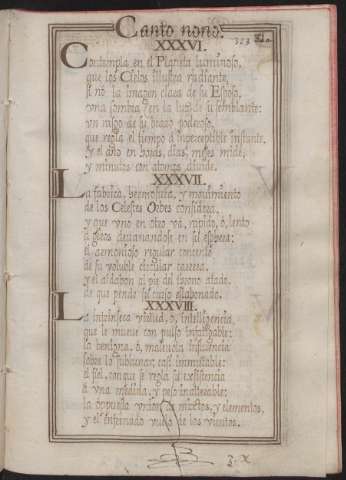 Canto nono.
323
XXXVI.
Contempla en el Planeta luminoso,
que los Cielos illustra radiante,
si nò la imagen clara de su Esposo,
una sombra en la luz de su semblante:
un rasgo de su brazo poderoso,
que regla el tiempo à imperceptible instante,
y el año en horas, dias, meses mide,
y minutos con atomos divide.
XXXVII.
La fabrica, hermosura, y movimiento
de los Celestes Orbes considera,
y que uno en otro và, rapido, ò, lento
à giros devanandose en su esphera:
el armonioso regular concento
de su voluble circular carrera,
y el aldabon al pie del throno atado,
de que pende su curso eslabonado.
XXXVIII.
La intrinseca virtud, ò, intelligencia,
que le mueve con pulso infatigable:
la benigna, ò, malevola influencia
sobre lo sublunar, casi immutable:
el fiel, con que se regla su existencia
à una medida, y peso inalterable:
la opuesta union de mixtos, y elementos,
y el enfrenado vuelo de los vientos.